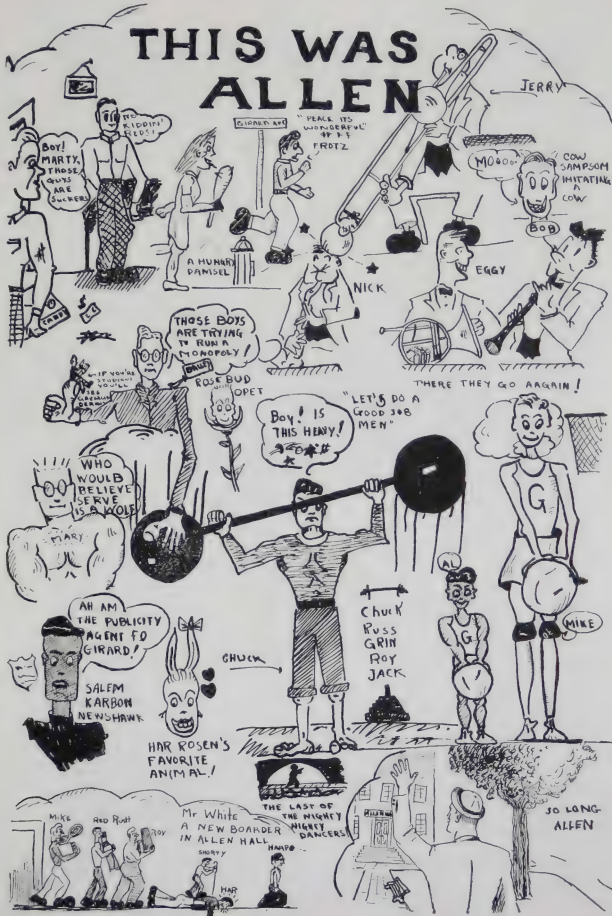 THIS WAS
ALLEN
JERRY
NO
KIDDIN'
REDS!
BOY!
MARTY,
THOSE
GUYS
ARE
SUCKERS
GIRARD AVE
"PEACE ITS
WONDERFUL"
FROTZ
A HUNGRY
DAMSEL
MOOOO
COW
SAMPSOM
IMITATING
A
COW
BOB
EGGY
NICK
CANDY
THERE THEY GO AAGAIN!
THOSE BOYS
ARE TRYING
TO RUN A
MONOPOLY!
DAILY
IF YOU'RE
YOU'LL
ROSEBUD
OPET
"LET'S DO A
GOOD JOB
MEN"
BOY! IS
THIS HEAVY!
WHO
WOULD
BELIEVE
SERVE
IS A WOLF
MARY
G
AL
G
MIKE
CHUCK
RUSS
GRIN
ROY
JACK
AH AM
THE PUBLICITY
AGENT FO
GIRARD!
SALEM
KARBON
NEWSHAWK
CHUCK
HAR ROSEN'S
FAVORITE
ANIMAL!
THE LAST OF
THE NIGHTY
NIGHTY
DANCERS
MIKE
RED RUTT
ROY
Mr White
A NEW BOARDER
IN ALLEN HALL
SHORTY
HAR
HAAPO
SO LONG
ALLEN